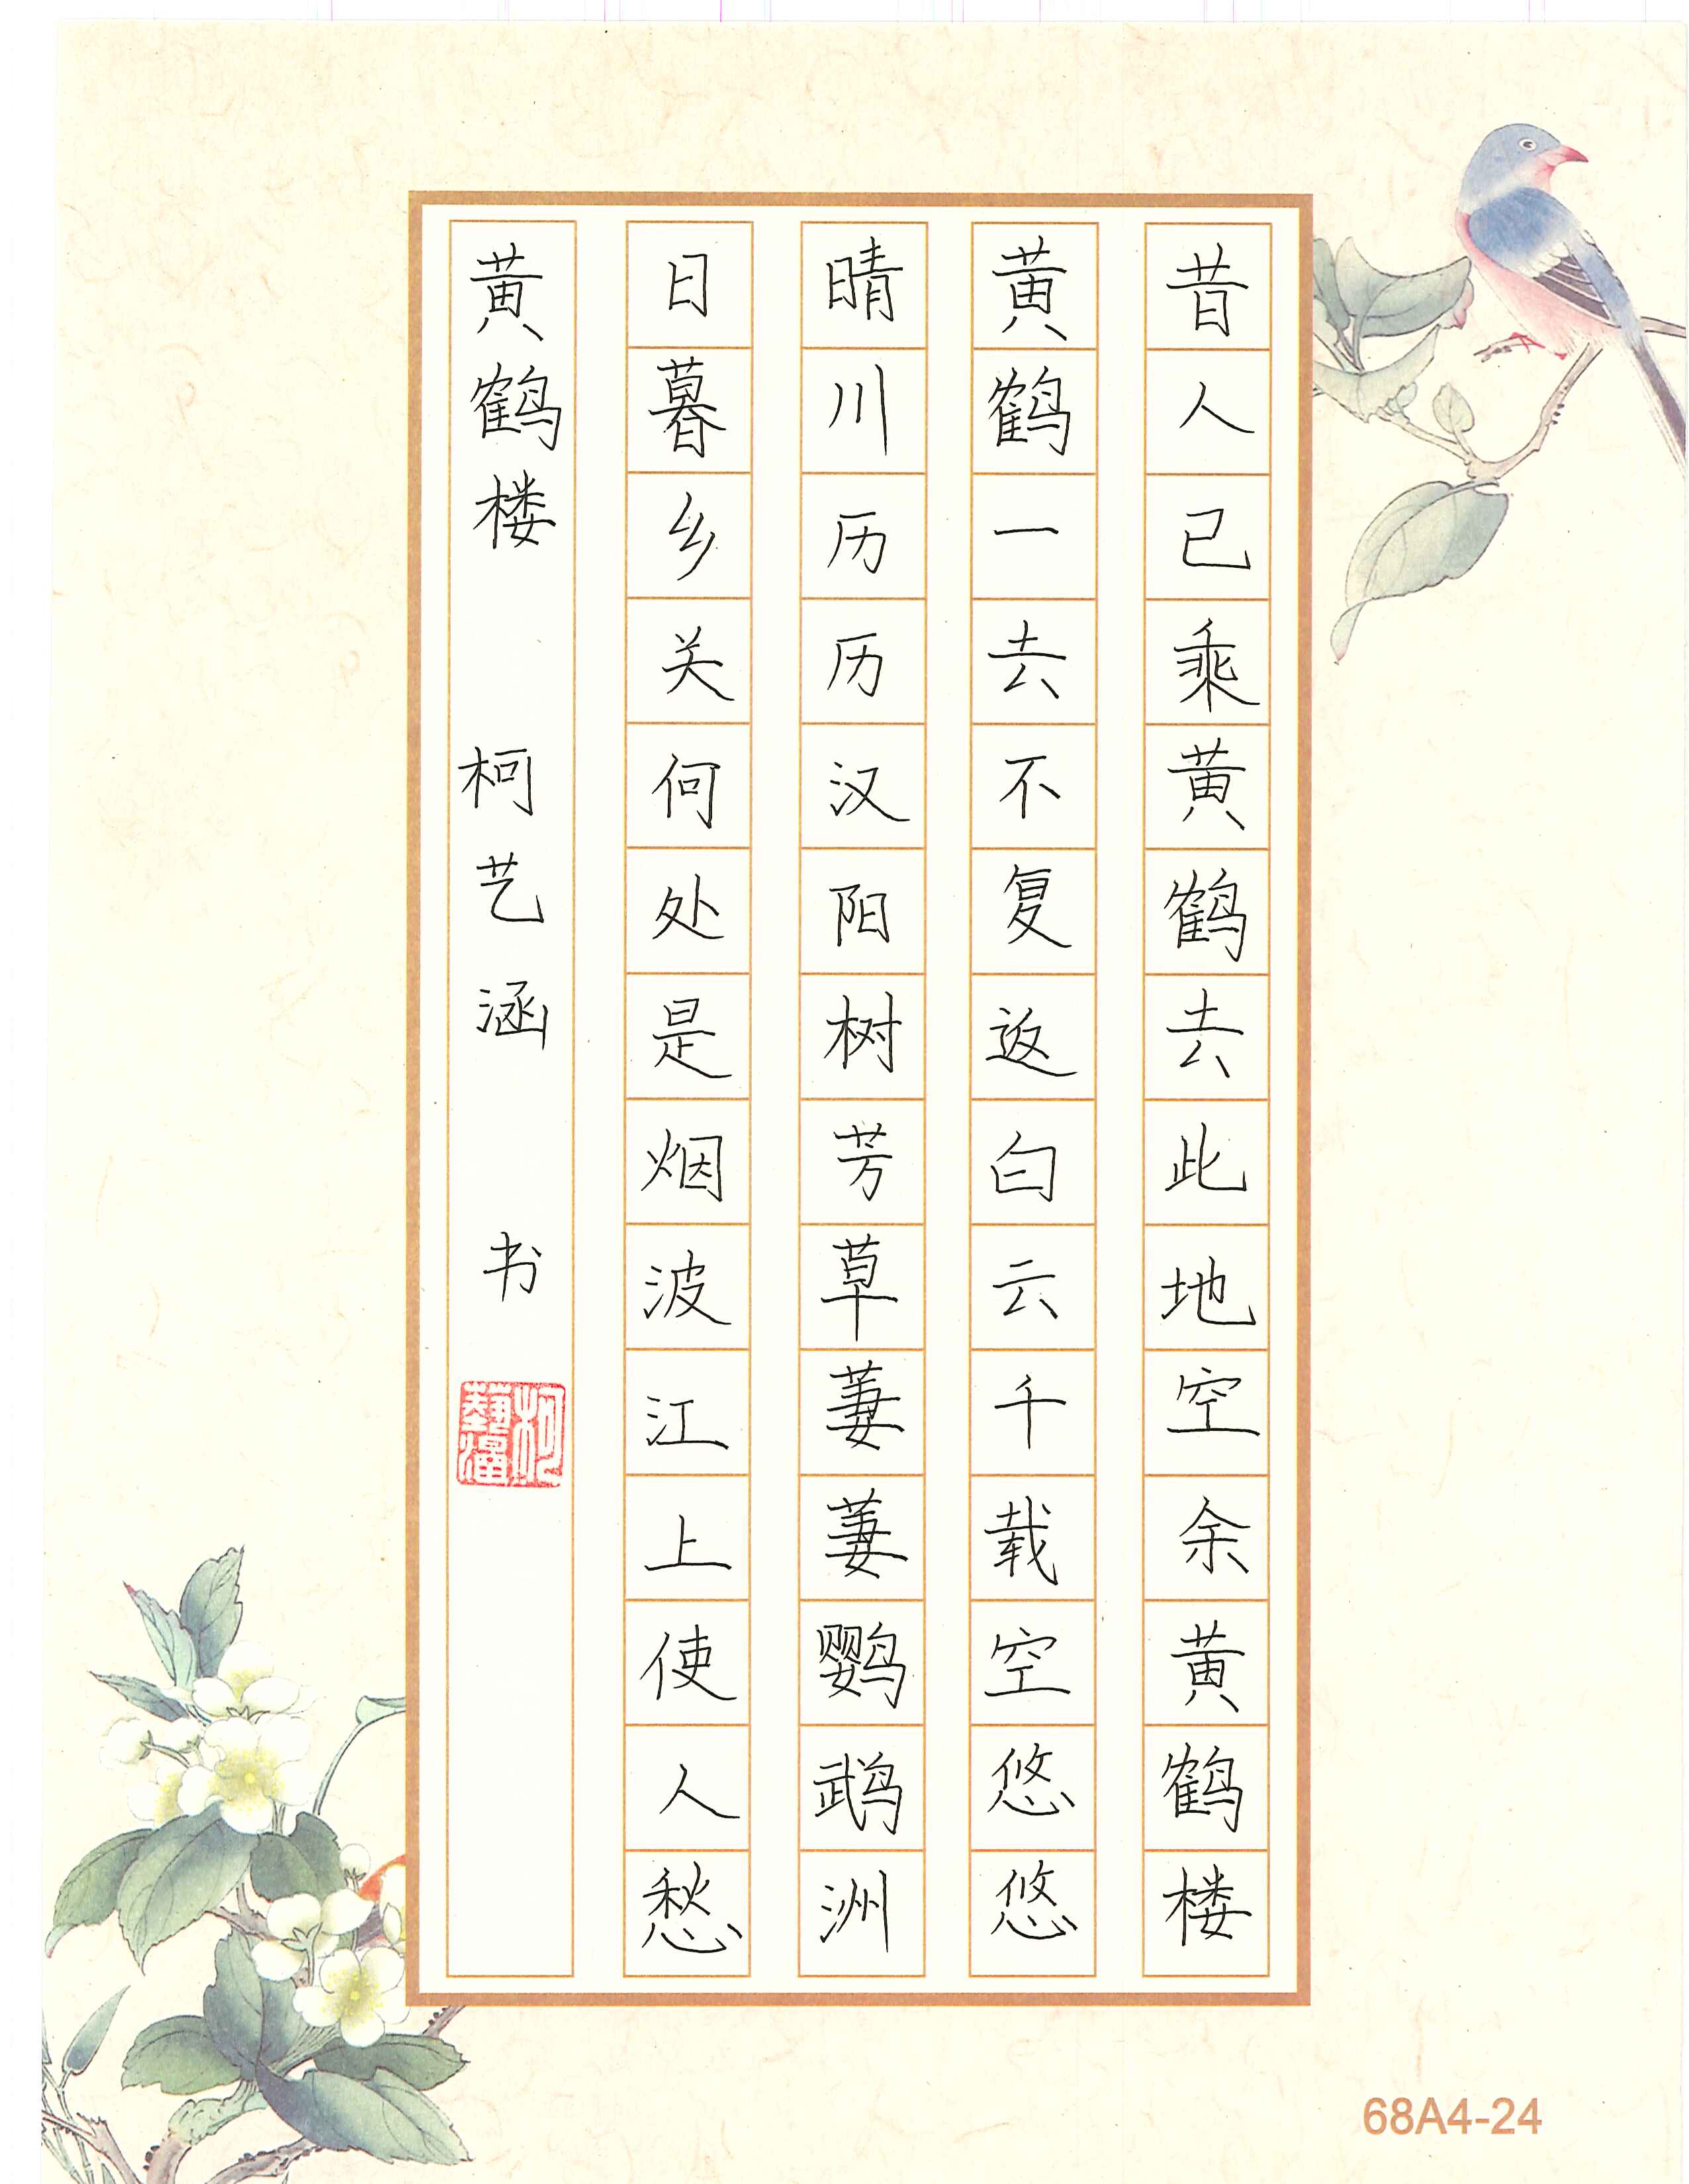 昔人已乘黄鹤去此地空余黄鹤楼
黄鹤一去不复返白云千载空悠悠
晴川历历汉阳树芳草萋萋鹦鹉洲
日暮乡关何处是烟波江上使人愁
黄鹤楼 柯艺涵 书
68A4-24